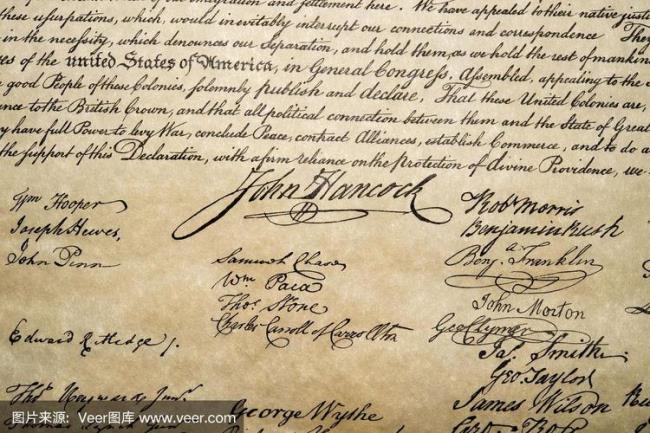 of our emigration and settlement here. We have appealed to their native justi
these usurpations, which, would inevitably interrupt our connections and correspondence They
in the necessity, which denounces our Separation, and hold them, as we hold the rest of mankin
es of the united States of America, in General Congress, Assembled, appealing to the
good People of these Colonies, solemnly publish and declare, That these United Colonies are,
nce to the British Crown, and that all political connection between them and the State of Great
y have full Power to levy War, conclude Peace, contract Alliances, establish Commerce, and to do a
the support of this Declaration, with a firm reliance on the Protection of divine Providence, we
John Hancock
Wm Hooper
Joseph Hewes,
John Penn
Edward Rutledge /.
Thos Heyward Junr.
Thomas Lynch Junr.
Samuel Chase
Wm. Paca
Thos. Stone
Charles Carroll of Carrollton
George Wythe
Robt Morris
Benjamin Rush
Benja. Franklin
John Morton
Geo Clymer
Jas. Smith.
Geo. Taylor
James Wilson
Geo. Ross
图片来源:Veer图库 www.veer.com